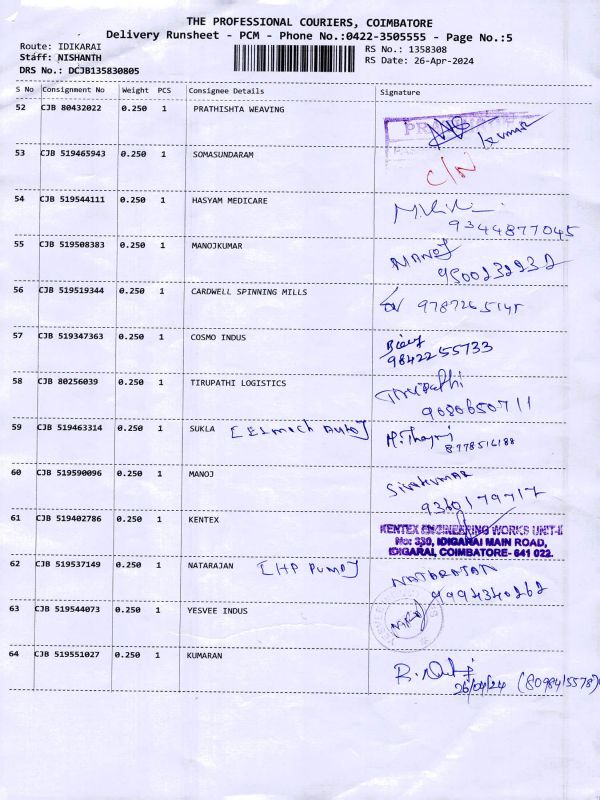 THE PROFESSIONAL COURIERS, COIMBATORE
Delivery Runsheet - PCM - Phone No.:0422-3505555 - Page No.:5
Route: IDIKARAI RS No.: 1358308
Staff: NISHANTH RS Date: 26-Apr-2024
DRS No.: DCJB135830805
S No Consignment No Weight PCS Consignee Details Signature
52 CJB 80432022 0.250 1 PRATHISHTA WEAVING Kumar
53 CJB 519465943 0.250 1 SOMASUNDARAM C/N
54 CJB 519544111 0.250 1 HASYAM MEDICARE
9344877045
55 CJB 519508383 0.250 1 MANOJKUMAR MANOJ
9500232932
56 CJB 519519344 0.250 1 CARDWELL SPINNING MILLS
57 CJB 519347363 0.250 1 COSMO INDUS
9842255733
58 CJB 80256039 0.250 1 TIRUPATHI LOGISTICS Tirupathi
9080650711
59 CJB 519463314 0.250 1 SUKLA
8778516188
60 CJB 519590096 0.250 1 MANOJ Sivakumar
61 CJB 519402786 0.250 1 KENTEX
KENTEX ENGINEERING WORKS UNIT-II
No: 330, IDIGARAI MAIN ROAD,
IDIGARAI, COIMBATORE- 641 022.
62 CJB 519537149 0.250 1 NATARAJAN [HP Pump] NATARAJAN
9994340262
63 CJB 519544073 0.250 1 YESVEE INDUS
64 CJB 519551027 0.250 1 KUMARAN
26/04/24 (8098415578)